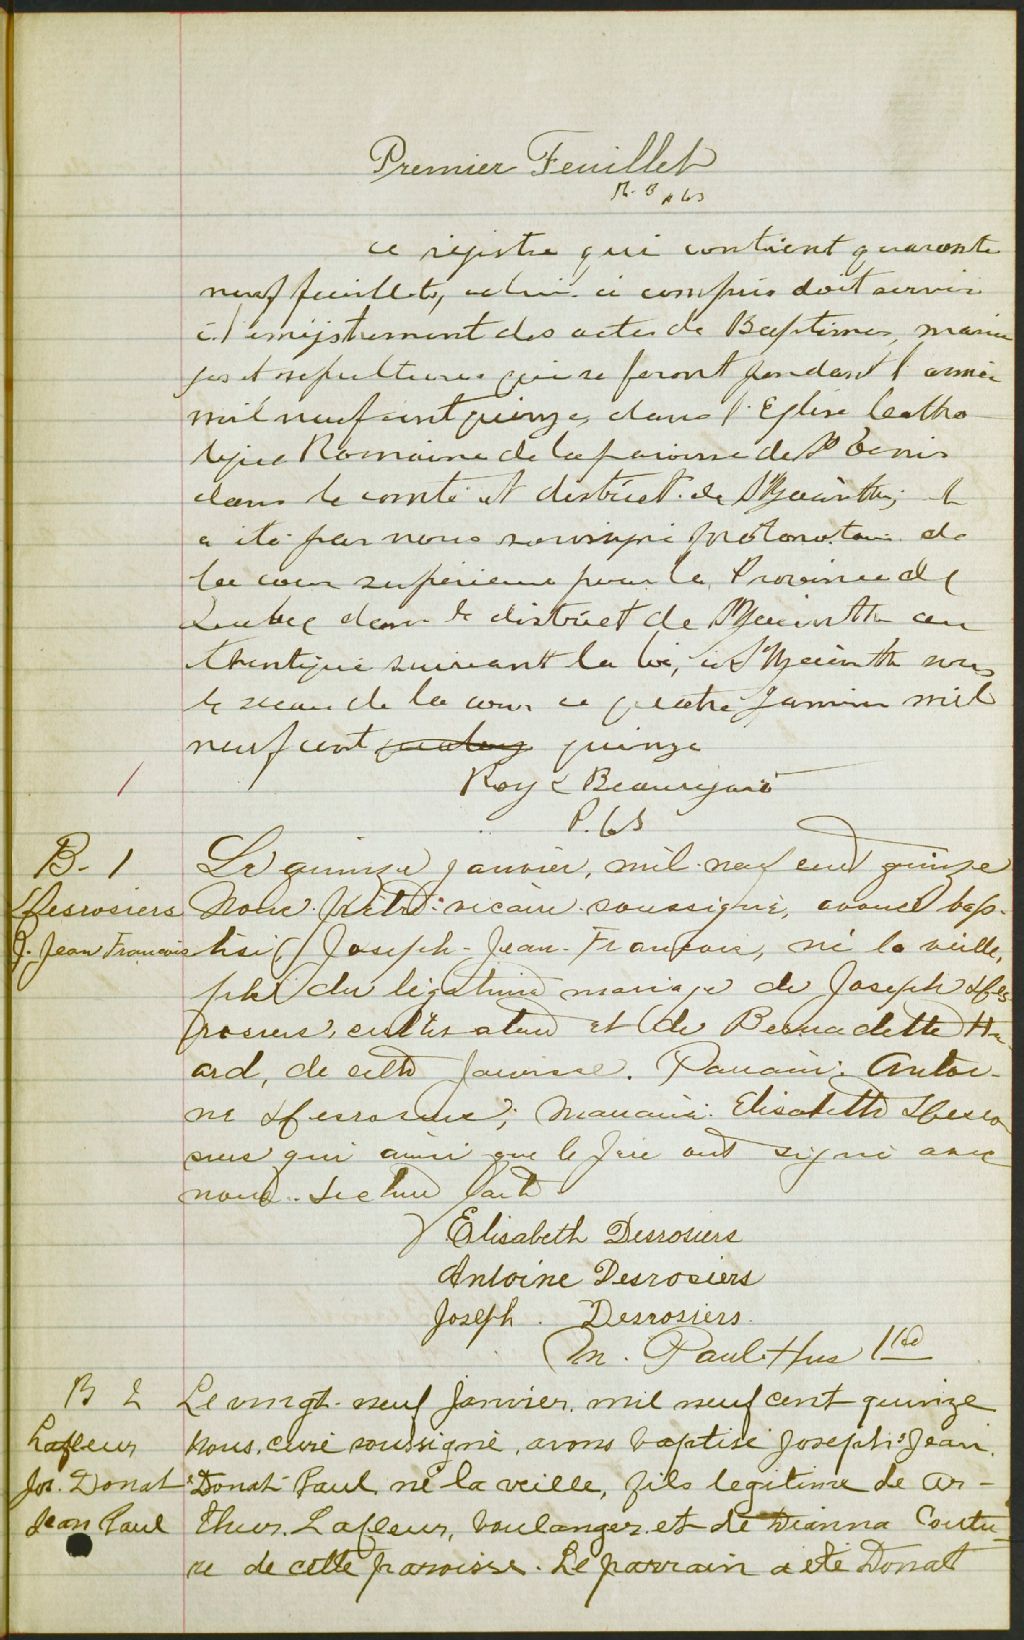 Premier Feuillet
R. & B P.C.S
Ce régistre qui contient quarante
neuf feuillets, celui-ci compris doit servir
à l'enregistrement des actes de Baptêmes, maria
ges et sepultures qui se feront pendant l'année
mil neuf cent quinze, dans l'Eglise Catho
lique Romaine de la paroisse de St Denis
dans le comté et district de St Hyacinthe, et
a été par nous soussigné protonotaire de
la cour supérieure pour la Province de
Quebec dans le district de St Hyacinthe au
thentiqué suivant la loi, à St Hyacinthe sous
le sceau de la cour ce quatre Janvier mil
neuf cent quatorze quinze
Roy & Beauregard
P.C.S
B. 1
Desrosiers
J. Jean François
Le quinze janvier, mil neuf cent quinze
Nous Prêtre vicaire soussigné, avons bap-
tisé Joseph-Jean-François, né la veille,
fils du légitime mariage de Joseph Des
rosiers, cultivateur et de Bernadette Hu-
ard, de cette paroisse. Parrain: Antoi-
ne Desrosiers; Marraine: Elisabeth Desro
siers qui ainsi que le père ont signé avec
nous. Lecture faite
Elisabeth Desrosiers
Antoine Desrosiers
Joseph. Desrosiers.
M. Paul-Hus Ptre
B 2
Lafleur
Jos. Donat
Jean Paul
Le vingt-neuf Janvier, mil neuf cent quinze
Nous, curé soussigné, avons baptisé Joseph-Jean.
Donat-Paul, né la veille, fils legitime de Ar-
thur Lafleur, boulanger et de Dianna Coutu-
re de cette paroisse. Le parrain a été Donat